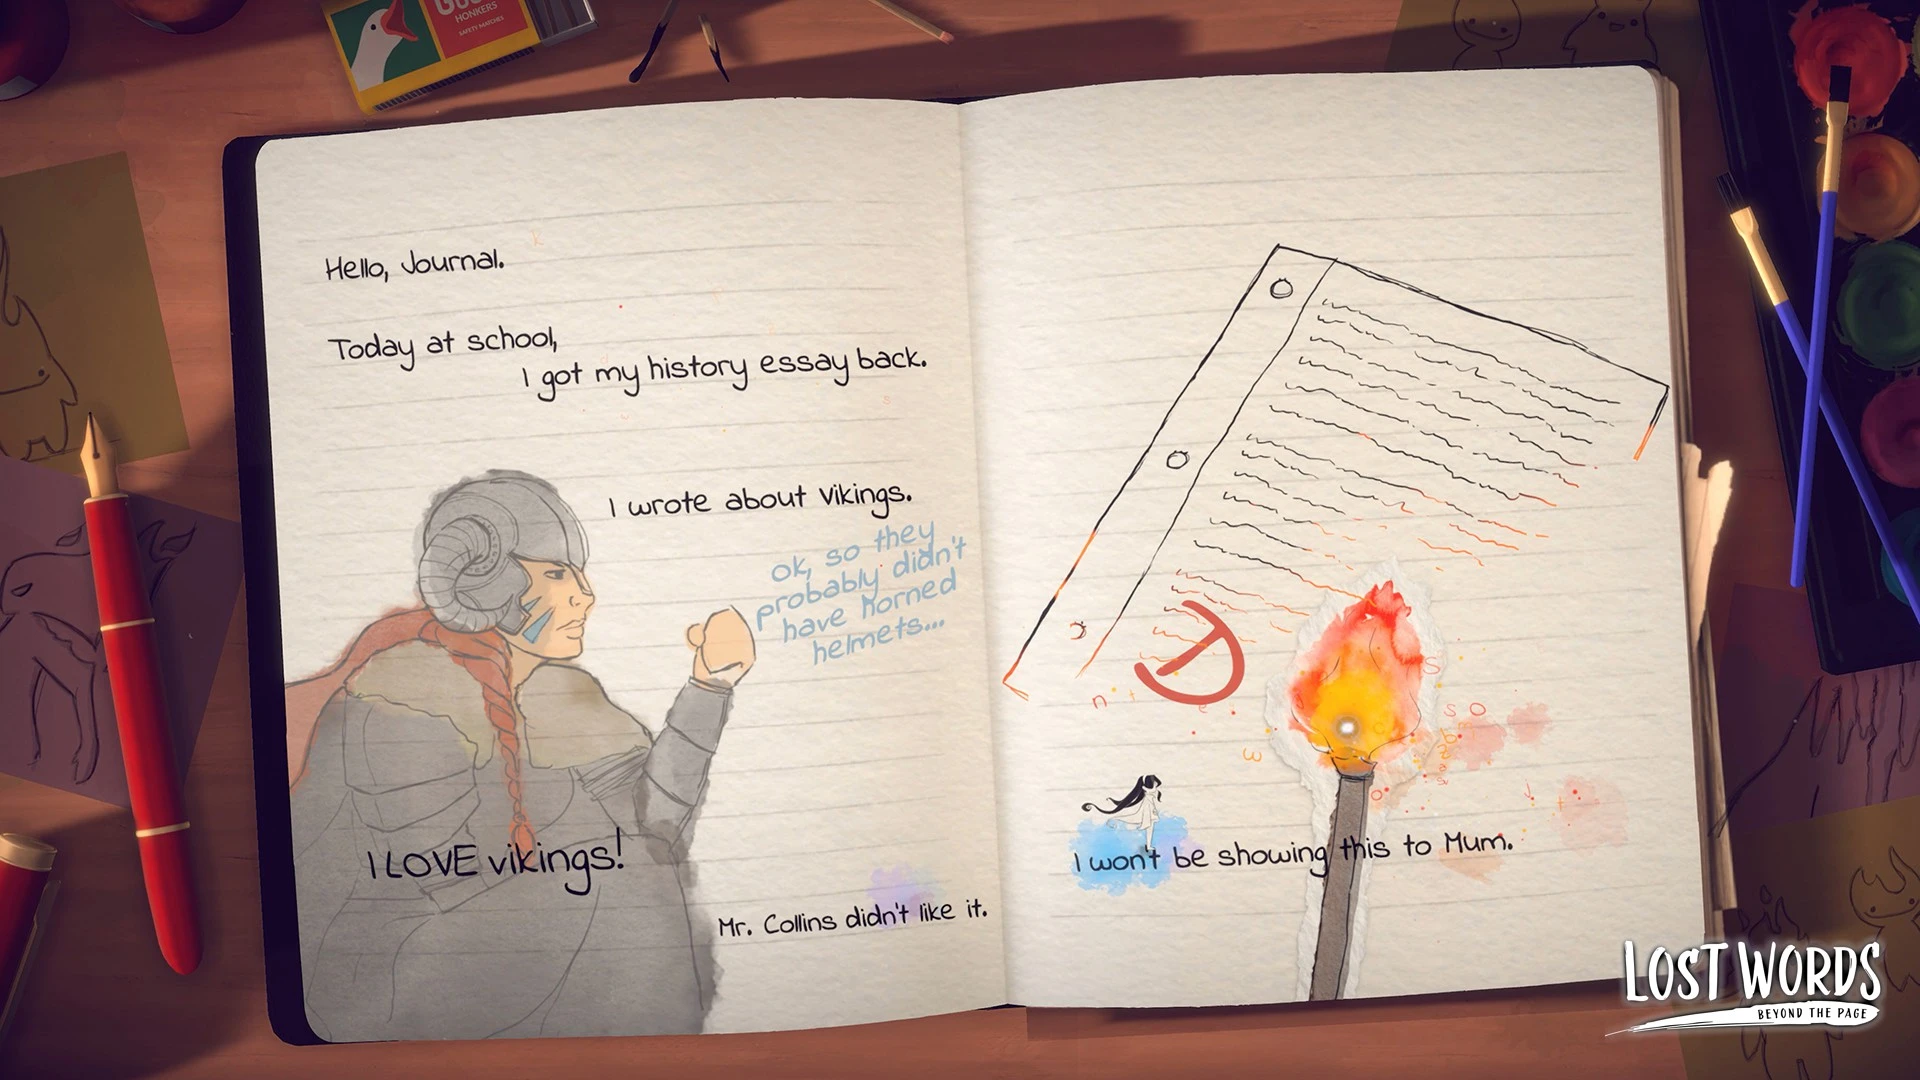 HONKERS
SAFETY MATCHES
Hello, Journal.
Today at school,
I got my history essay back.
I wrote about Vikings.
ok, so they
probably didn't
have horned
helmets...
I LOVE vikings!
Mr. Collins didn't like it.
D
I won't be showing this to Mum.
LOST WORDS
BEYOND THE PAGE